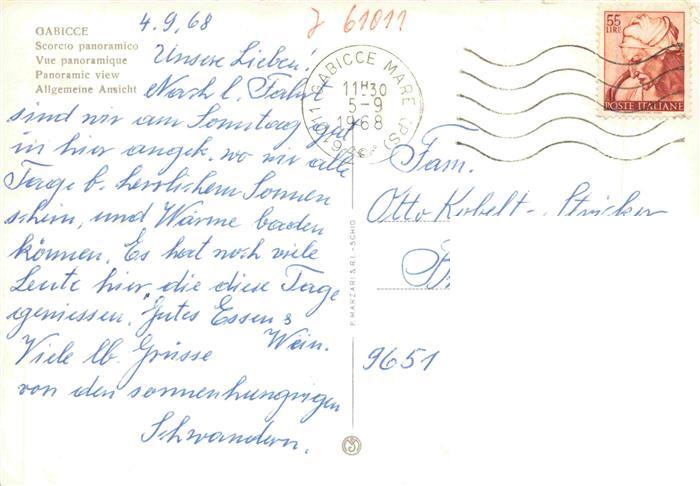 4.9.68
J 61011
GABICCE
Scorcio panoramico
Vue panoramique
Panoramic view
Allgemeine Ansicht
Unsere Lieben!
Nach l. Fahrt
sind wir am Sonntag gut
in hier angek. wo wir alle
Tage b. herrlichem Sonnen
schein, und Wärme baden
können. Es hat noch viele
Leute hier, die diese Tage
geniessen. Gutes Essen &
Wein.
Viele lb. Grüsse
von den sonnenhungrigen
Schwandern.
GABICCE MARE (PS)
11H30
5-9
1968
55
LIRE
POSTE ITALIANE
Fam.
Otto Kobelt-Stricker
9651
F. MARZARI S.R.L. - SCHIO